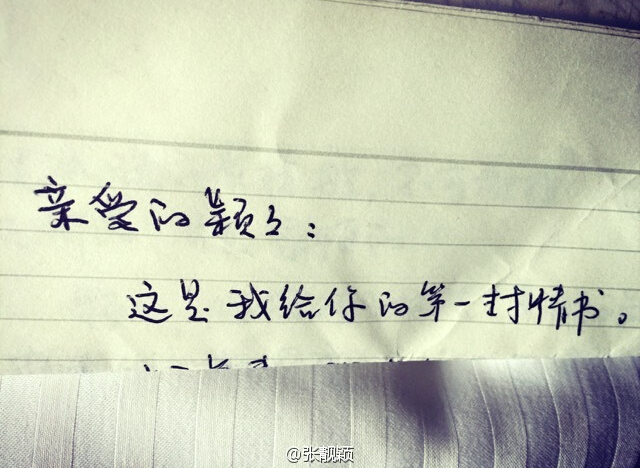 亲爱的颖颖：
这是我给你的第一封情书。
@张靓颖